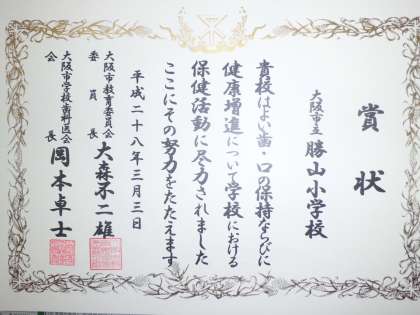 賞状
大阪市立 勝山小学校
貴校はよい歯・口の保持ならびに
健康増進について学校における
保健活動に尽力されました
ここにその努力をたたえます
平成二十八年三月三日
大阪市教育委員会
委員長 大森不二雄
大阪市学校歯科医会
会長 岡本卓士